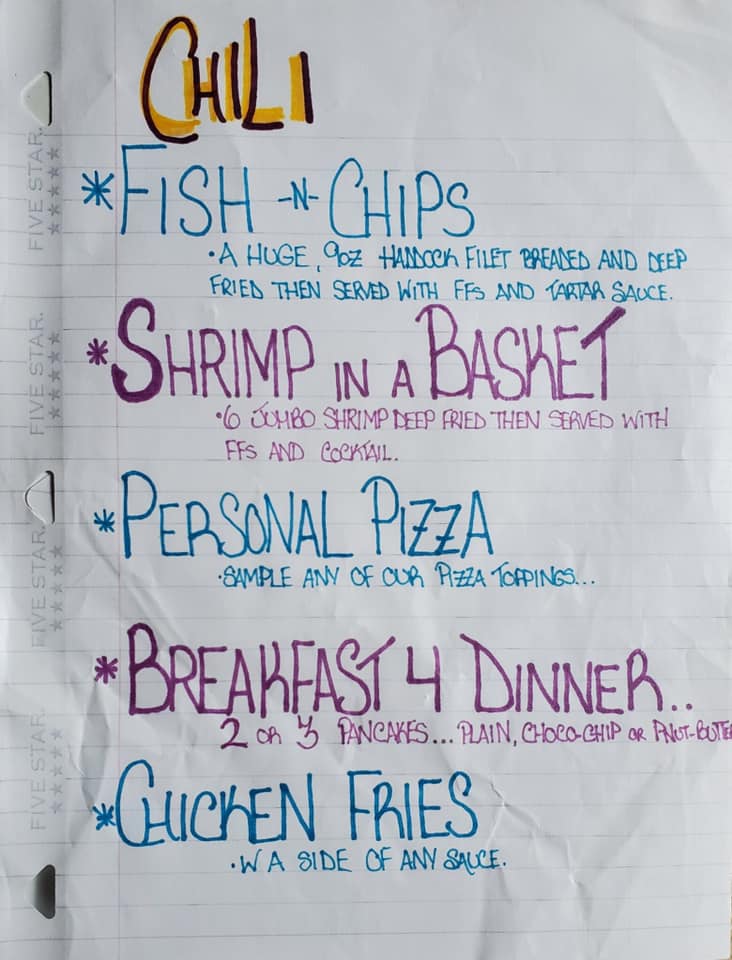 CHILI
*FISH -N- CHIPS
•A HUGE, 9OZ HADDOCK FILET BREADED AND DEEP
FRIED THEN SERVED WITH FFS AND TARTAR SAUCE.
*SHRIMP IN A BASKET
•6 JUMBO SHRIMP DEEP FRIED THEN SERVED WITH
FFS AND COCKTAIL.
*PERSONAL PIZZA
•SAMPLE ANY OF OUR PIZZA TOPPINGS...
*BREAKFAST 4 DINNER..
2 OR 3 PANCAKES... PLAIN, CHOCO-CHIP OR PNUT-BUTTE
*CHICKEN FRIES
•W A SIDE OF ANY SAUCE.
FIVE STAR. ★★★★★
FIVE STAR. ★★★★★
FIVE STAR. ★★★★★
FIVE STAR. ★★★★★